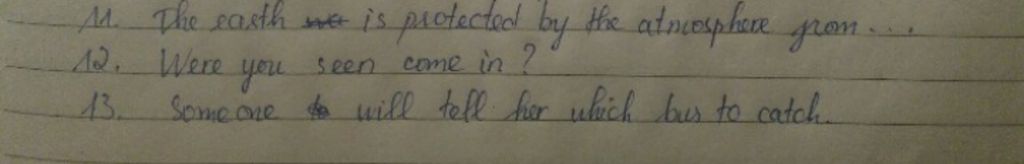 11. The earth is protected by the atmosphere from....
12. Were you seen come in?
13. Someone will tell her which bus to catch.